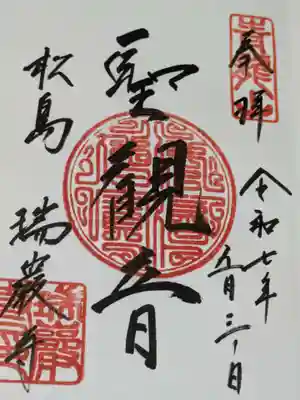 奉拝
令和七年
五月三十日
聖觀音
松島 瑞巖寺